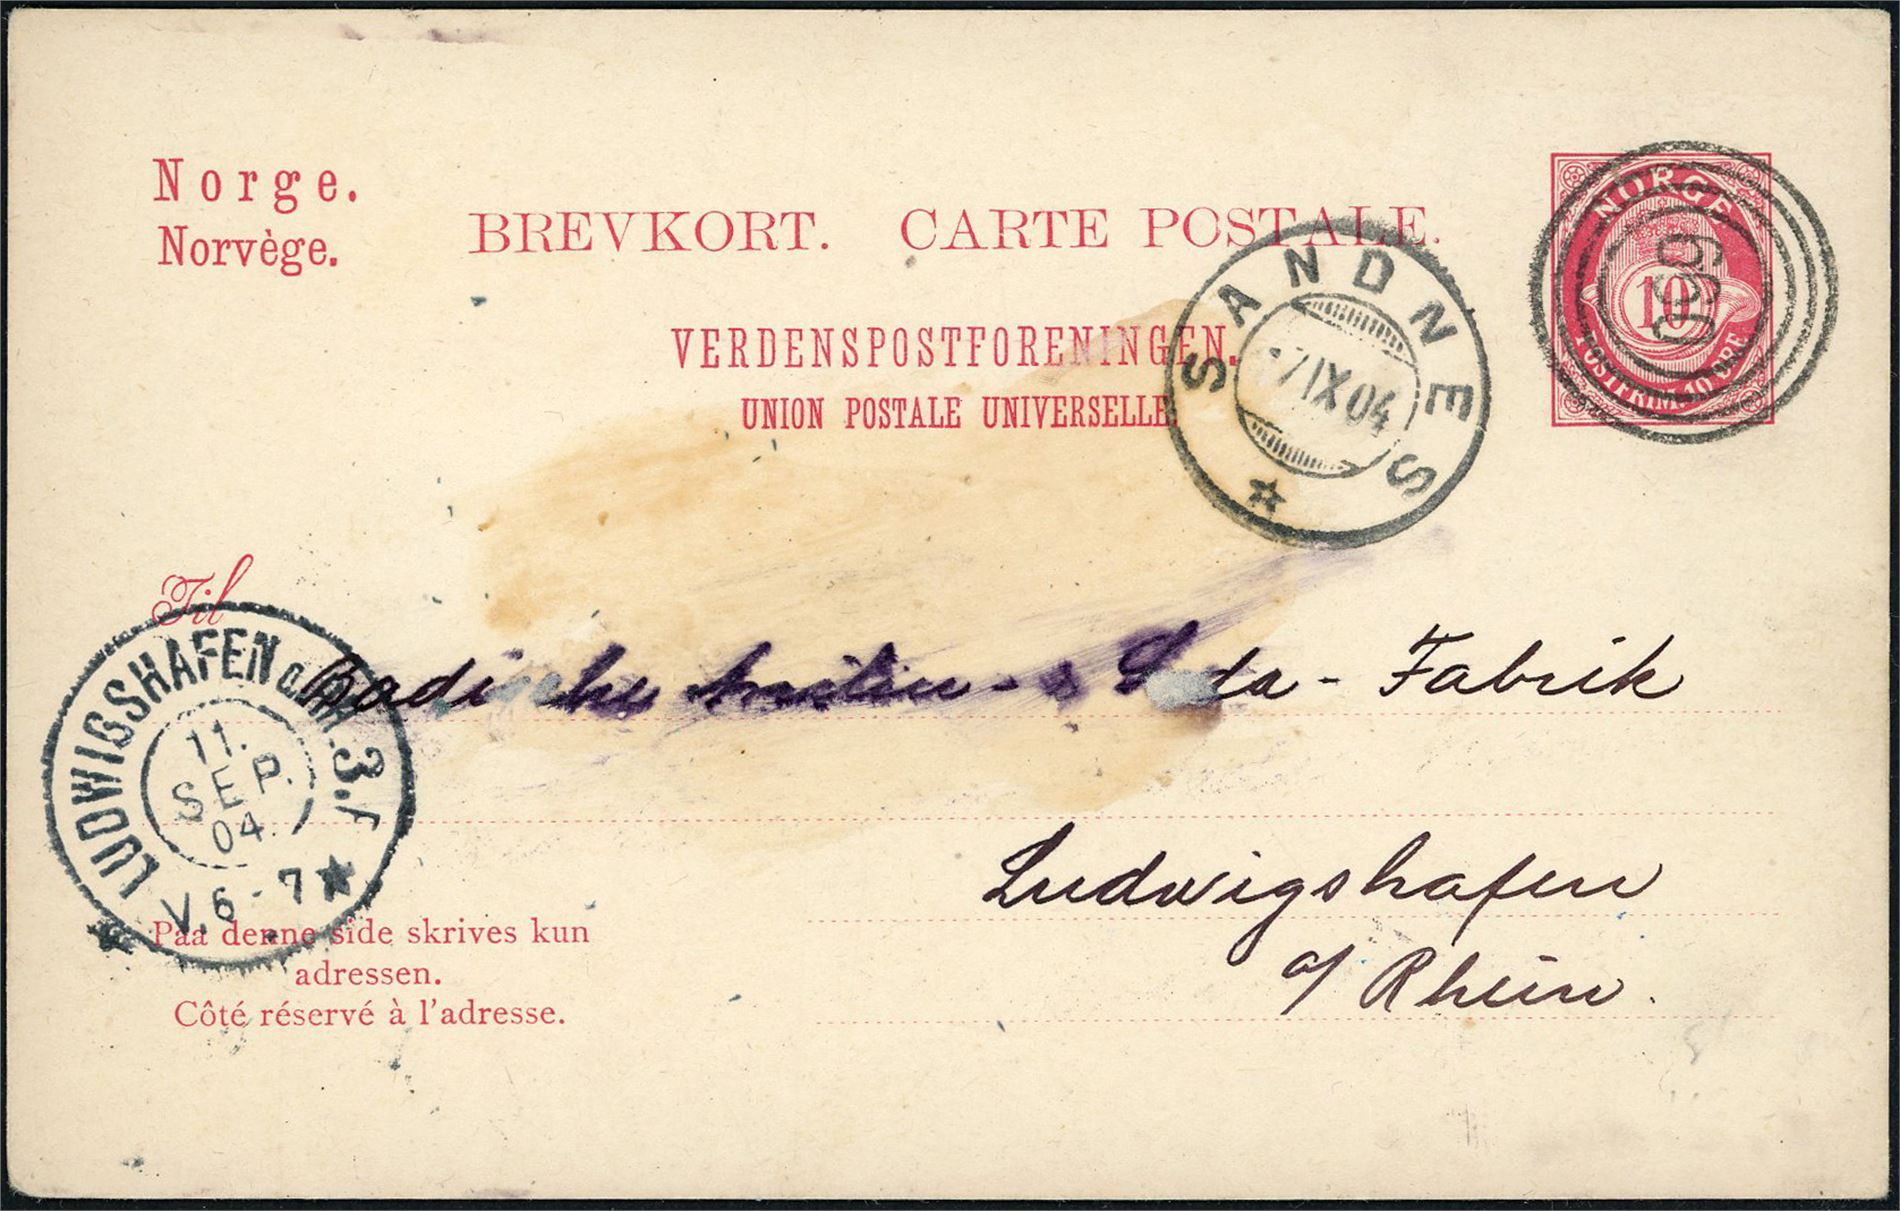 Norge.
Norvège.
BREVKORT. CARTE POSTALE.
NORGE
10
POSTFRIM. 10 ØRE
690
VERDENSPOSTFORENINGEN.
UNION POSTALE UNIVERSELLE
SANDNES
7 IX 04
Til
LUDWIGSHAFEN a. RH. 3.
11.
SEP.
04.
V. 6-7
Badische Anilin- & Soda-Fabrik
Ludwigshafen
a/ Rhein.
Paa denne side skrives kun
adressen.
Côté réservé à l'adresse.